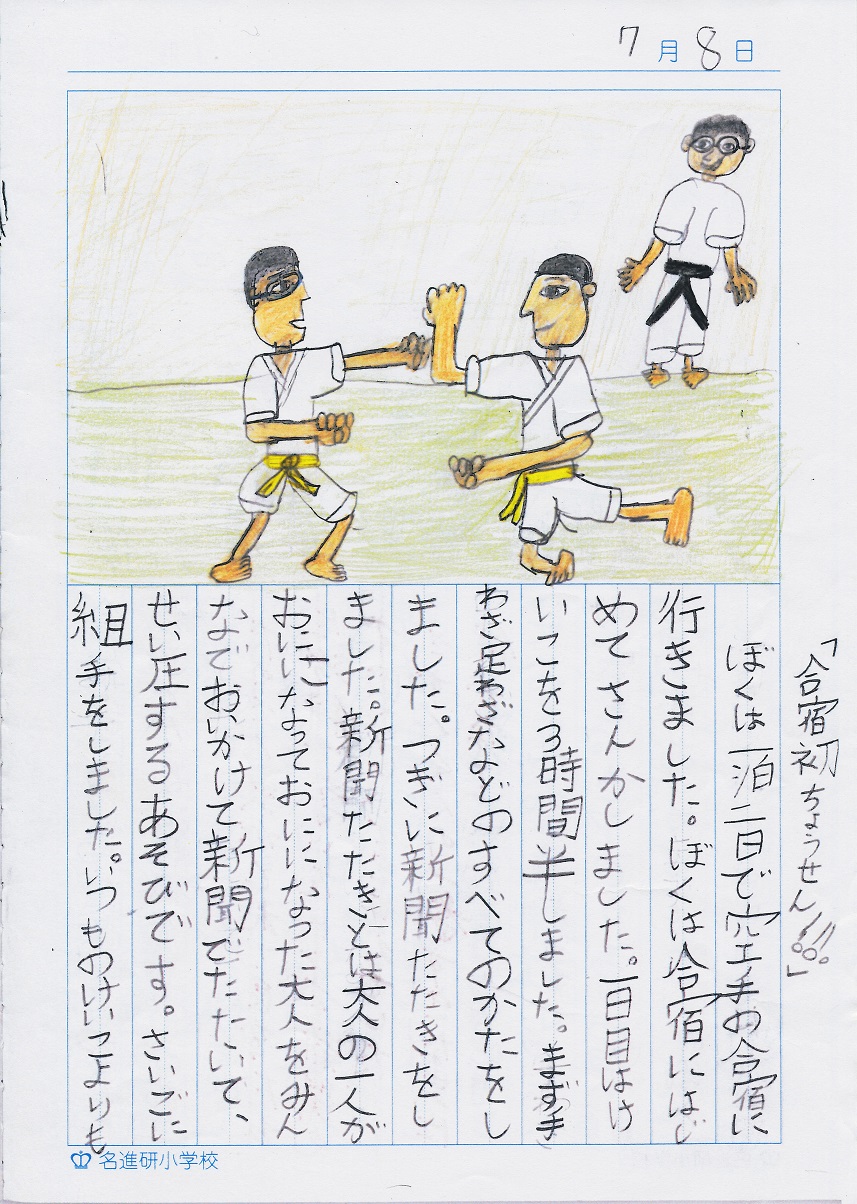 7月8日
「合宿初ちょうせん!!!」
ぼくは一泊二日で空手の合宿に
行きました。ぼくは合宿にはじ
めてさんかしました。一日目はけ
いこを3時間半しました。まず手
わざ足わざなどのすべてのかたをし
ました。つぎに新聞たたきをし
ました。新聞たたきとは大人の一人が
おにになっておにになった大人をみん
なでおいかけて新聞でたたいて、
せい圧するあそびです。さいごに
組手をしました。いつものけいこよりも
名進研小学校